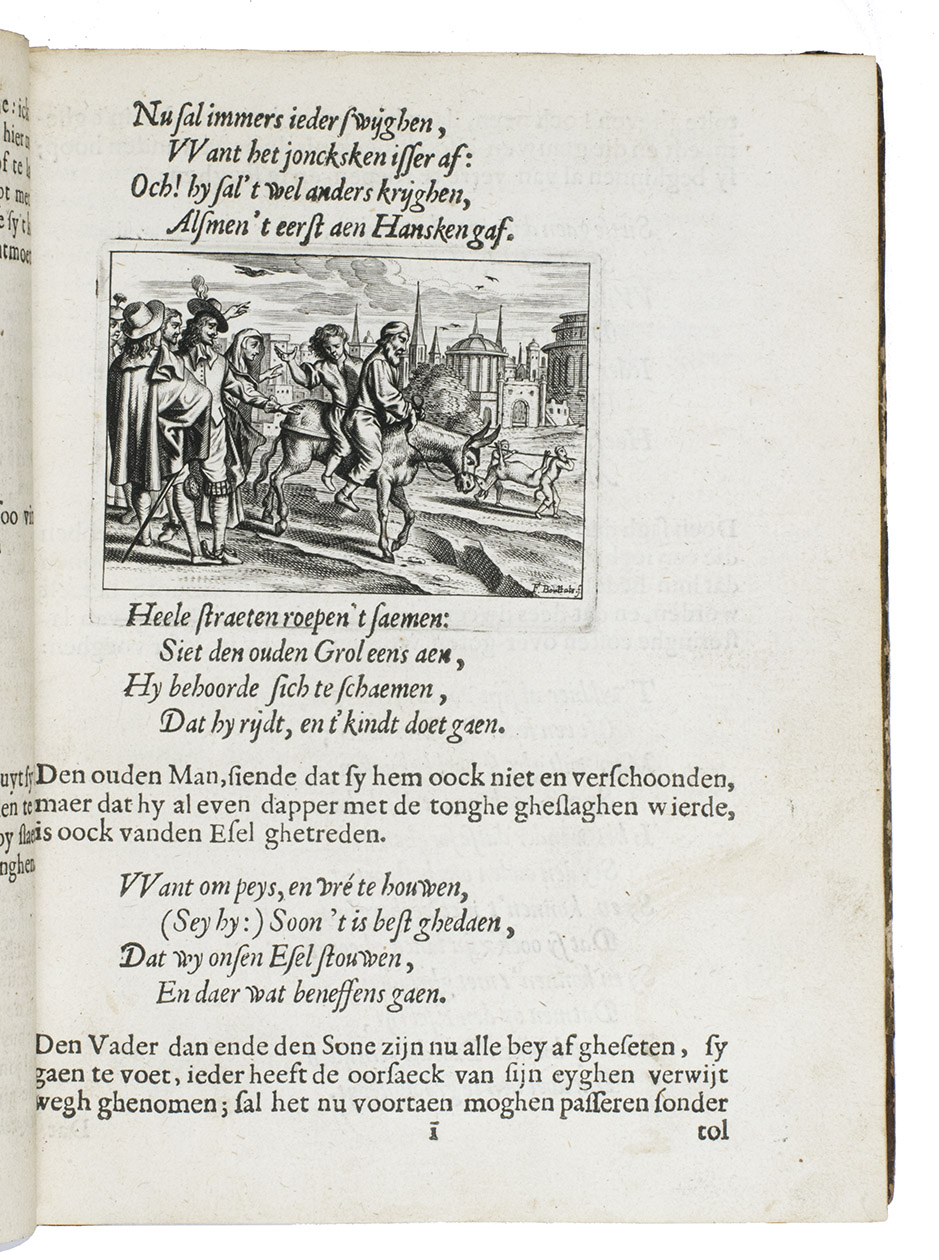 Nu sal immers ieder swijghen,
VVant het joncksken isser af:
Och! hy sal't wel anders krijghen,
Alsmen't eerst aen Hansken gaf.
F. Bouttats f.
Heele straeten roepen't saemen:
Siet den ouden Grol eens aen,
Hy behoorde sich te schaemen,
Dat hy rijdt, en t'kindt doet gaen.
Den ouden Man, siende dat sy hem oock niet en verschoonden,
maer dat hy al even dapper met de tonghe gheslaghen wierde,
is oock vanden Esel ghetreden.
VVant om peys, en vré te houwen,
(Sey hy:) Soon 't is best ghedaen,
Dat wy onsen Esel stouwen,
En daer wat beneffens gaen.
Den Vader dan ende den Sone zijn nu alle bey af gheseten, sy
gaen te voet, ieder heeft de oorsaeck van sijn eyghen verwijt
wegh ghenomen; sal het nu voortaen moghen passeren sonder
ī tol